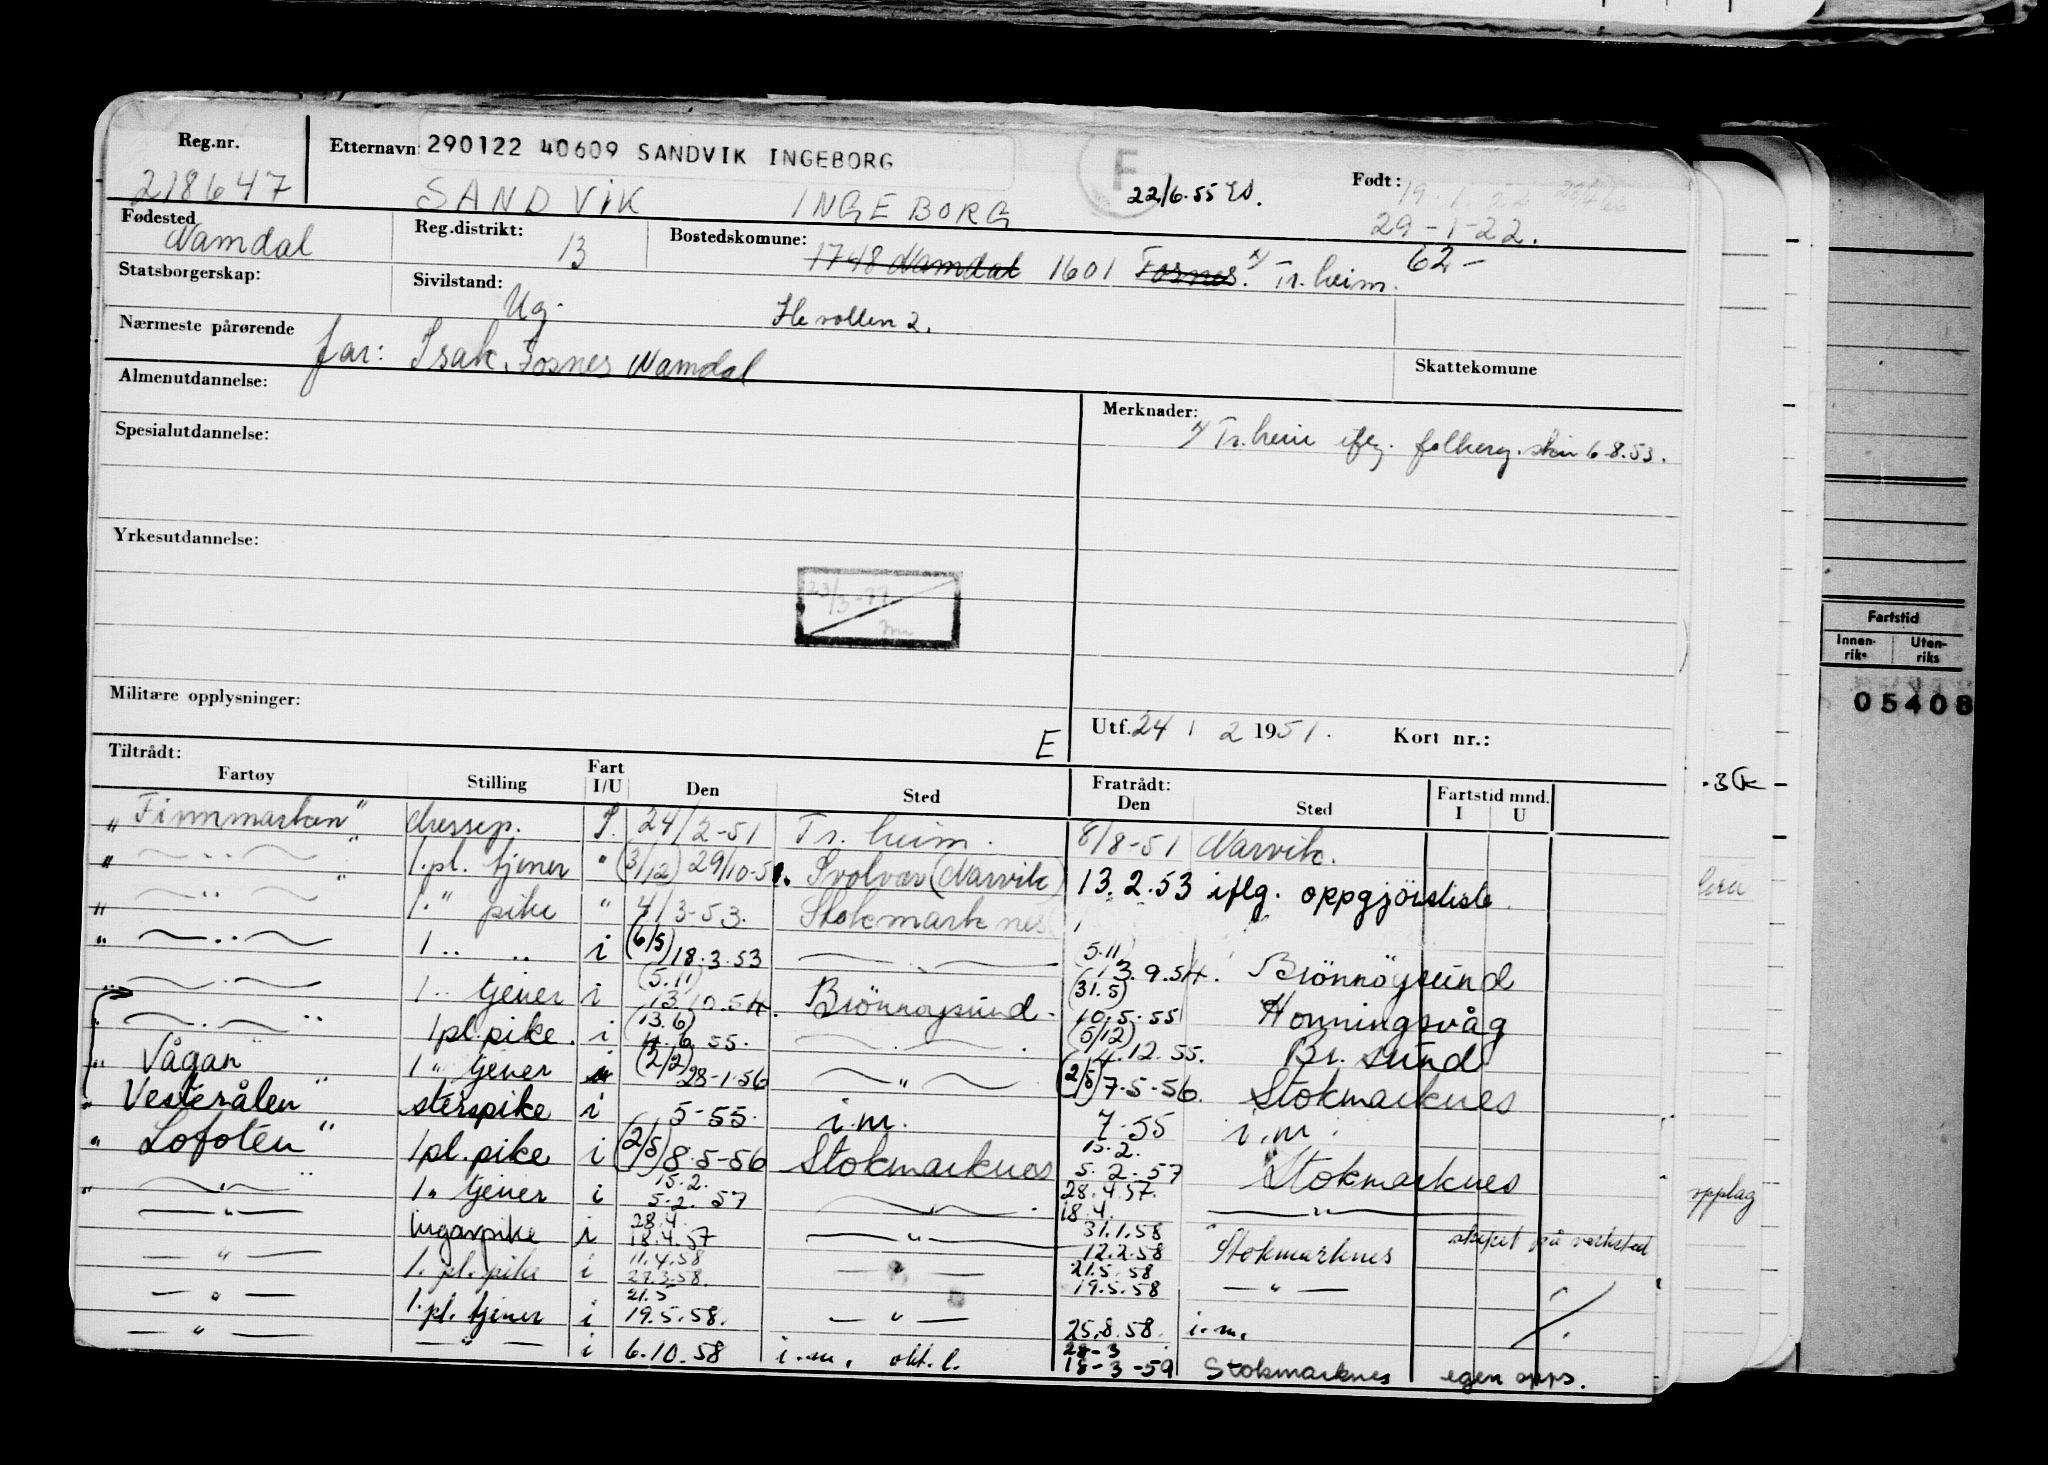 Reg.nr. Etternavn: 290122 40609 SANDVIK INGEBORG F 22/6.55 Født: 19.1.22
218647 SANDVIK INGEBORG 29-1-22.
Fødested Namdal Reg.distrikt: 13 Bostedskomune: 1748 Namdal 1601 Fosnes. x) Tr.heim. 62-
Statsborgerskap: Sivilstand: Ug. Hevollen 2.
Nærmeste pårørende far: Isak, Fosnes Namdal Skattekomune
Almenutdannelse: Merknader:
x) Tr.heim iflg. folkereg. skr. 6-8.53.
Spesialutdannelse:
Yrkesutdannelse:
23/3-77
Militære opplysninger: E Utf. 24 / 2 1951. Kort nr.:
Tiltrådt: Fratrådt:
Fartøy Stilling Fart I/U Den Sted Den Sted Fartstid mnd. I U
"Finnmarken" dressep. 24/2-51 Tr.heim. 8/8-51 Narvik.
" — " — " 1.pl. tjener " (3/12) 29/10-51. Svolvær (Narvik) 13.2.53 iflg. oppgjörsliste.
" — " — " 1. " pike " 4/3-53. Stokmarknes
" — " — 1 " " i (6/5) 18.3.53 — " — (5.11) 13.9.54. Brönnöysund
" — " — 1 " tjener i (5.11) 13.10.54. Brönnoysund. (31.5) 10.5.55 Honningsvåg
" — " — " 1pl.pike. i (13.6) 4.6.55. — " — . (5/12) 4.12.55. Br.sund
" Vågan" 1 " tjener i (2/2) 28-1-56 — " — (2/5) 7-5-56. Stokmarknes
" Vesterålen" sterspike i 5-55. i.m. 7-55 i.m.
" Lofoten" 1pl.pike i (2/5) 8.5-56 Stokmarknes 15.2. 5.2-57 Stokmarknes
" — " — " 1 " tjener i 15.2. 5.2.57 — " — . 28.4.57. 18.4. — " —
— " — lugarpike i 28.4. 18.4.57 — " — 31.1.58 12.2.58 Stokmarknes skipet på verksted
— " — 1. pl. pike i 11.4.58 27.3.58. — " — 21.5.58 19.5.58 — " —
— " — 1.pl. tjener i 21.5 19.5.58. — " — 25.8.58. i.m.
— " — — " — i 6.10.58 i.m. okt.l. 28-3 18-3-59 Stokmarknes egen opps.
Fartstid
Innen-riks Uten-riks
05408
opplag